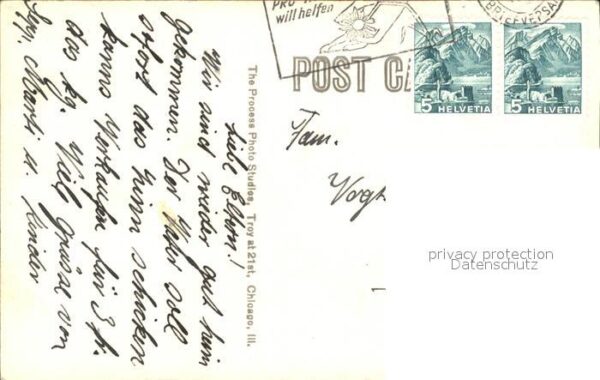 PRO
will helfen
BRIEFVERSA
POST CA
5 HELVETIA
5 HELVETIA
The Process Photo Studios, Troy at 21st, Chicago, Ill.
Liebe Eltern!
Wir sind wieder gut heim
gekommen. Der Vater soll
sofort das schicken
kanns Verkaufen für 3 fr.
das kg. Viele Grüsse von
u. Kinder
Fam.
Vogt
privacy protection
Datenschutz